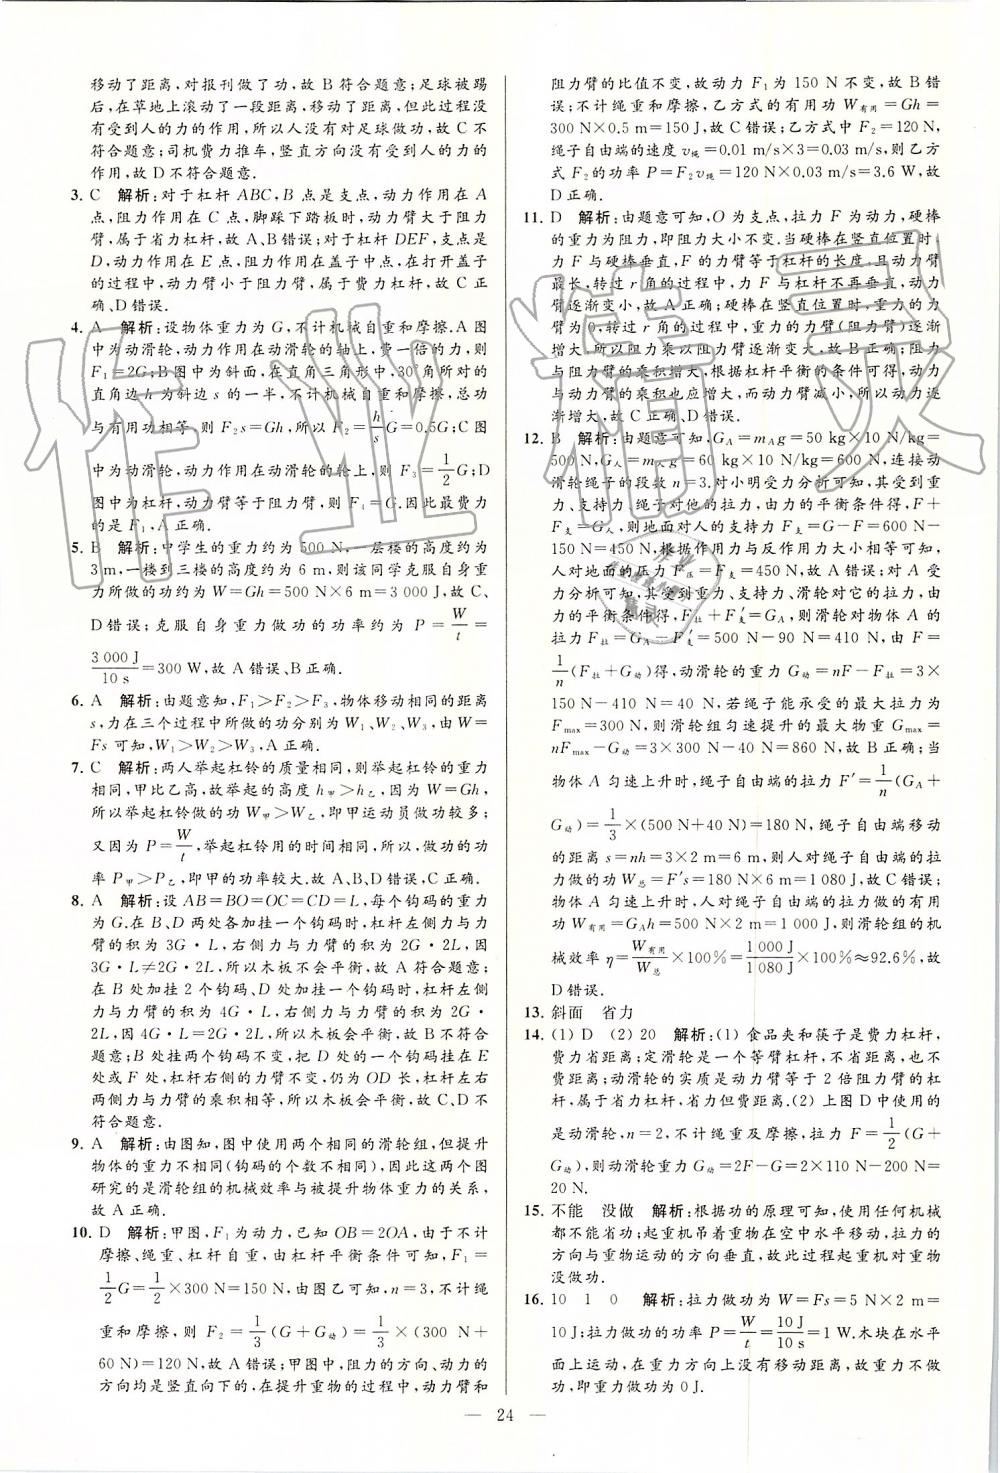 移动了距离,对报刊做了功,故 B 符合题意;足球被踢
后,在草地上滚动了一段距离,移动了距离,但此过程没
有受到人的力的作用,所以人没有对足球做功,故 C 不
符合题意;司机费力推车,竖直方向没有受到人的力的
作用,故 D 不符合题意.
3. C 解析:对于杠杆 ABC,B 点是支点,动力作用在 A
点,阻力作用在 C 点,脚踩下踏板时,动力臂大于阻力
臂,属于省力杠杆,故 A、B 错误;对于杠杆 DEF,支点是
D,动力作用在 E 点,阻力作用在盖子中点,在打开盖子
的过程中,动力臂小于阻力臂,属于费力杠杆,故 C 正
确、D 错误.
4. A 解析:设物体重力为 G,不计机械自重和摩擦.A 图
中为动滑轮,动力作用在动滑轮的轴上,费一倍的力,则
F₁=2G;B 图中为斜面,在直角三角形中,30°角所对的
直角边 h 为斜边 s 的一半,不计机械自重和摩擦,总功
与有用功相等,则 F₂s=Gh,所以 F₂=h/s G=0.5G;C 图
中为动滑轮,动力作用在动滑轮的轮上,则 F₃=1/2 G;D
图中为杠杆,动力臂等于阻力臂,则 F₄=G.因此最费力
的是 F₁,A 正确.
5. B 解析:中学生的重力约为 500 N,一层楼的高度约为
3 m,一楼到三楼的高度约为 6 m,则该同学克服自身重
力所做的功约为 W=Gh=500 N×6 m=3 000 J,故 C、
D 错误;克服自身重力做功的功率约为 P=W/t=
3 000 J/10 s=300 W,故 A 错误、B 正确.
6. A 解析:由题意知,F₁>F₂>F₃,物体移动相同的距离
s,力在三个过程中所做的功分别为 W₁、W₂、W₃,由 W=
Fs 可知,W₁>W₂>W₃,A 正确.
7. C 解析:两人举起杠铃的质量相同,则杠铃的重力
相同,甲比乙高,故举起的高度 h甲>h乙,因为 W=Gh,
所以举杠铃做的功 W甲>W乙,即甲运动员做功较多;
又因为 P=W/t,举起杠铃用的时间相同,所以,做功的功
率 P甲>P乙,即甲的功率较大.故 A、B、D 错误,C 正确.
8. A 解析:设 AB=BO=OC=CD=L,每个钩码的重力
为 G.在 B、D 两处各加挂一个钩码时,杠杆左侧力与力
臂的积为 3G·L,右侧力与力臂的积为 2G·2L,因
3G·L≠2G·2L,所以木板不会平衡,故 A 符合题意;
在 B 处加挂 2 个钩码、D 处加挂一个钩码时,杠杆左侧
力与力臂的积为 4G·L,右侧力与力臂的积为 2G·
2L,因 4G·L=2G·2L,所以木板会平衡,故 B 不符合
题意;B 处挂两个钩码不变,把 D 处的一个钩码挂在 E
处或 F 处,杠杆右侧的力臂不变,仍为 OD 长,杠杆左右
两侧力与力臂的乘积相等,所以木板会平衡,故 C、D 不
符合题意.
9. A 解析:由图知,图中使用两个相同的滑轮组,但提升
物体的重力不相同(钩码的个数不相同),因此这两个图
研究的是滑轮组的机械效率与被提升物体重力的关系,
故 A 正确.
10. D 解析:甲图,F₁ 为动力,已知 OB=2OA,由于不计
摩擦、绳重、杠杆自重,由杠杆平衡条件可知,F₁=
1/2 G=1/2×300 N=150 N,由图乙可知,n=3,不计绳
重和摩擦,则 F₂=1/3(G+G动)=1/3×(300 N+
60 N)=120 N,故 A 错误;甲图中,阻力的方向、动力的
方向均是竖直向下的,在提升重物的过程中,动力臂和
阻力臂的比值不变,故动力 F₁ 为 150 N 不变,故 B 错
误;不计绳重和摩擦,乙方式的有用功 W有用=Gh=
300 N×0.5 m=150 J,故 C 错误;乙方式中 F₂=120 N,
绳子自由端的速度 v绳=0.01 m/s×3=0.03 m/s,则乙方
式中 F₂ 的功率 P=F₂v绳=120 N×0.03 m/s=3.6 W,故
D 正确.
11. D 解析:由题意可知,O 为支点,拉力 F 为动力,硬棒
的重力为阻力,即阻力大小不变.当硬棒在竖直位置时,
力 F 与硬棒垂直,F 的力臂等于杠杆的长度,且动力臂
最长,转过 r 角的过程中,力 F 与杠杆不再垂直,动力
臂逐渐变小,故 A 正确;硬棒在竖直位置时,重力的力
臂为 0,转过 r 角的过程中,重力的力臂(阻力臂)逐渐
增大,所以阻力乘以阻力臂逐渐变大,故 B 正确;阻力
与阻力臂的乘积增大,根据杠杆平衡的条件可得,动力
与动力臂的乘积也应增大,而动力臂减小,所以动力逐
渐增大,故 C 正确、D 错误.
12. B 解析:由题意可知,GA=mAg=50 kg×10 N/kg=
500 N,G人=m人g=60 kg×10 N/kg=600 N,连接动
滑轮绳子的段数 n=3.对小明受力分析可知,其受到重
力、支持力、绳子对他的拉力,由力的平衡条件得,F+
F支=G人,则地面对人的支持力 F支=G-F=600 N-
150 N=450 N,根据作用力与反作用力大小相等可知,
人对地面的压力 F压=F支=450 N,故 A 错误;对 A 受
力分析可知,其受到重力、支持力、滑轮对它的拉力,由
力的平衡条件得,F拉+F′支=GA,则滑轮对物体 A 的
拉力 F拉=GA-F′支=500 N-90 N=410 N,由 F=
1/n(F拉+G动)得,动滑轮的重力 G动=nF-F拉=3×
150 N-410 N=40 N,若绳子能承受的最大拉力为
Fmax=300 N,则滑轮组匀速提升的最大物重 Gmax=
nFmax-G动=3×300 N-40 N=860 N,故 B 正确;当
物体 A 匀速上升时,绳子自由端的拉力 F′=1/n(GA+
G动)=1/3×(500 N+40 N)=180 N,绳子自由端移动
的距离 s=nh=3×2 m=6 m,则人对绳子自由端的拉
力做的功 W总=F′s=180 N×6 m=1 080 J,故 C 错误;
物体 A 匀速上升时,人对绳子自由端的拉力做的有用
功 W有用=GAh=500 N×2 m=1 000 J,则滑轮组的机
械效率 η=W有用/W总×100%=1 000 J/1 080 J×100%≈92.6%,故
D 错误.
13. 斜面 省力
14. (1) D (2) 20 解析:(1) 食品夹和筷子是费力杠杆,
费力省距离;定滑轮是一个等臂杠杆,不省距离,也不
费距离;动滑轮的实质是动力臂等于 2 倍阻力臂的杠
杆,属于省力杠杆,省力但费距离.(2) 上图 D 中使用的
是动滑轮,n=2,不计绳重及摩擦,拉力 F=1/2(G+
G动),则动滑轮的重力 G动=2F-G=2×110 N-200 N=
20 N.
15. 不能 没做 解析:根据功的原理可知,使用任何机械
都不能省功;起重机吊着重物在空中水平移动,拉力的
方向与重物运动的方向垂直,故此过程起重机对重物
没做功.
16. 10 1 0 解析:拉力做功为 W=Fs=5 N×2 m=
10 J;拉力做功的功率 P=W/t=10 J/10 s=1 W.木块在水平
面上运动,在重力方向上没有移动距离,故重力不做
功,即重力做功为 0 J.
— 24 —
作业精灵